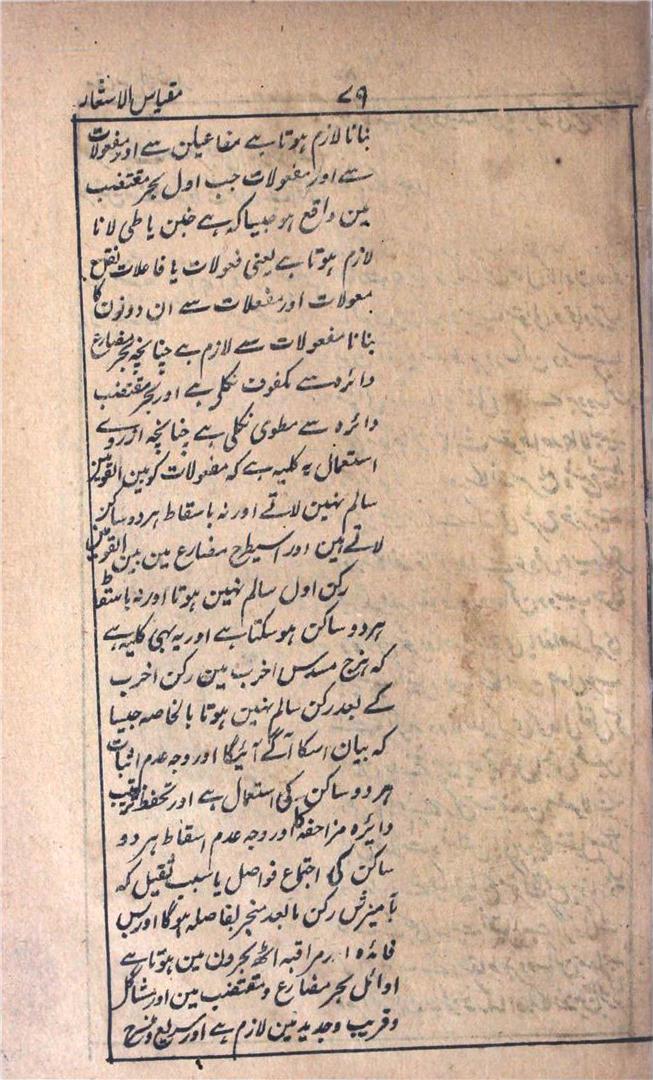 ۷۹ مقیاس الاشعار
بنانا لازم ہوتا ہے مفاعیلن سے اور مفعولات
سے اور مفعولات جب اول بحر مقتضب
مین واقع ہو جیسا کہ ہے خبن یا طی لانا
لازم ہوتا ہے یعنی فعولات یا فاعلات بقطع
معولات اور مفعلات سے ان دونون کا
بنانا مفعولات سے لازم ہے چنانچہ بحر مضارع
دائرہ سے مکفوف نکلی ہے اور بحر مقتضب
دائرہ سے مطوی نکلی ہے چنانچہ از روے
استعمال یہ کلیہ ہے کہ مفعولات کو بین القومین
سالم نہین لاتے اور نہ باسقاط ہر دو ساکن
لاتے ہین اور اسیطرح مضارع مین بین القومین
رکن اول سالم نہین ہوتا اور نہ باسقاط
ہر دو ساکن ہو سکتا ہے اور یہ بہی کلیہ ہے
کہ ہزج مسدس اخرب مین رکن اخرب
کے بعد رکن سالم نہین ہوتا بالخاصہ جیسا
کہ بیان اسکا آگے آئیگا اور وجہ عدم اثبات
ہر دو ساکن کی استعمال ہے اور تحفظ ترتیب
دائرہ مزاحفہ کا اور وجہ عدم اسقاط ہر دو
ساکن کی اجتماع فواصل یا سبب ثقیل کہ
بآمیزش رکن مابعد منجر بفاصلہ ہوگا اور بس
فائدہ اور مراقبہ اٹھ بحرون مین ہوتا ہے
اوائل بحر مضارع و مقتضب مین اور مشاکل
و قریب و جدید مین لازم ہے اور سریع و منسرح